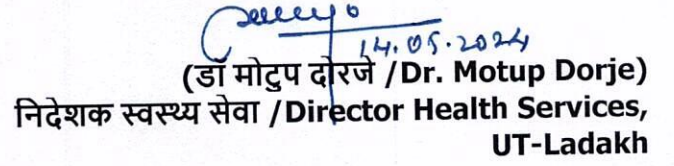 14.05.2024
(डॉ मोटुप दोरजे /Dr. Motup Dorje)
निदेशक स्वस्थ्य सेवा /Director Health Services,
UT-Ladakh